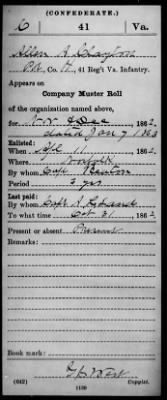 (CONFEDERATE.)
C 41 Va.
Allen A Clayton
Pvt, Co. H, 41 Reg't Va. Infantry.
Appears on
Company Muster Roll
of the organization named above,
for Nov & Dec 1862
dated Jan 7 1863
Enlisted:
When 11 1862
Where Norfolk
By whom Capt
Period 3 yrs
Last paid:
By whom Capt
To what time Oct 31 1862
Present or absent Present
Remarks:
Book mark:
(642) Copyist.